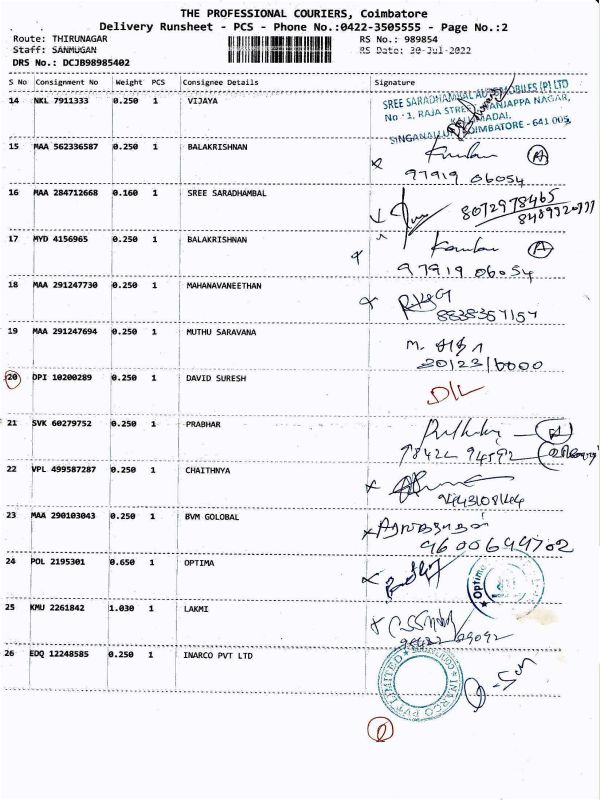 THE PROFESSIONAL COURIERS, Coimbatore
Delivery Runsheet - PCS - Phone No.:0422-3505555 - Page No.:2
Route: THIRUNAGAR RS No.: 989854
Staff: SANMUGAN RS Date: 30-Jul-2022
DRS No.: DCJB98985402
S No Consignment No Weight PCS Consignee Details Signature
14 NKL 7911333 0.250 1 VIJAYA
SREE SARADHAMBAL AUTOMOBILES (P) LTD
No : 1, RAJA STREET, NANJAPPA NAGAR,
SINGANALLUR, COIMBATORE - 641 005.
15 MAA 562336587 0.250 1 BALAKRISHNAN
97919 06054
16 MAA 284712668 0.160 1 SREE SARADHAMBAL
8072978465
17 MYD 4156965 0.250 1 BALAKRISHNAN
97919 06054
18 MAA 291247730 0.250 1 MAHANAVANEETHAN
8838357157
19 MAA 291247694 0.250 1 MUTHU SARAVANA
20 DPI 10200289 0.250 1 DAVID SURESH
D/L
21 SVK 60279752 0.250 1 PRABHAR
22 VPL 499587287 0.250 1 CHAITHNYA
23 MAA 290103043 0.250 1 BVM GOLOBAL
9600644702
24 POL 2195301 0.650 1 OPTIMA
Optima
25 KMU 2261842 1.030 1 LAKMI
26 EDQ 12248585 0.250 1 INARCO PVT LTD
INARCO PVT LIMITED